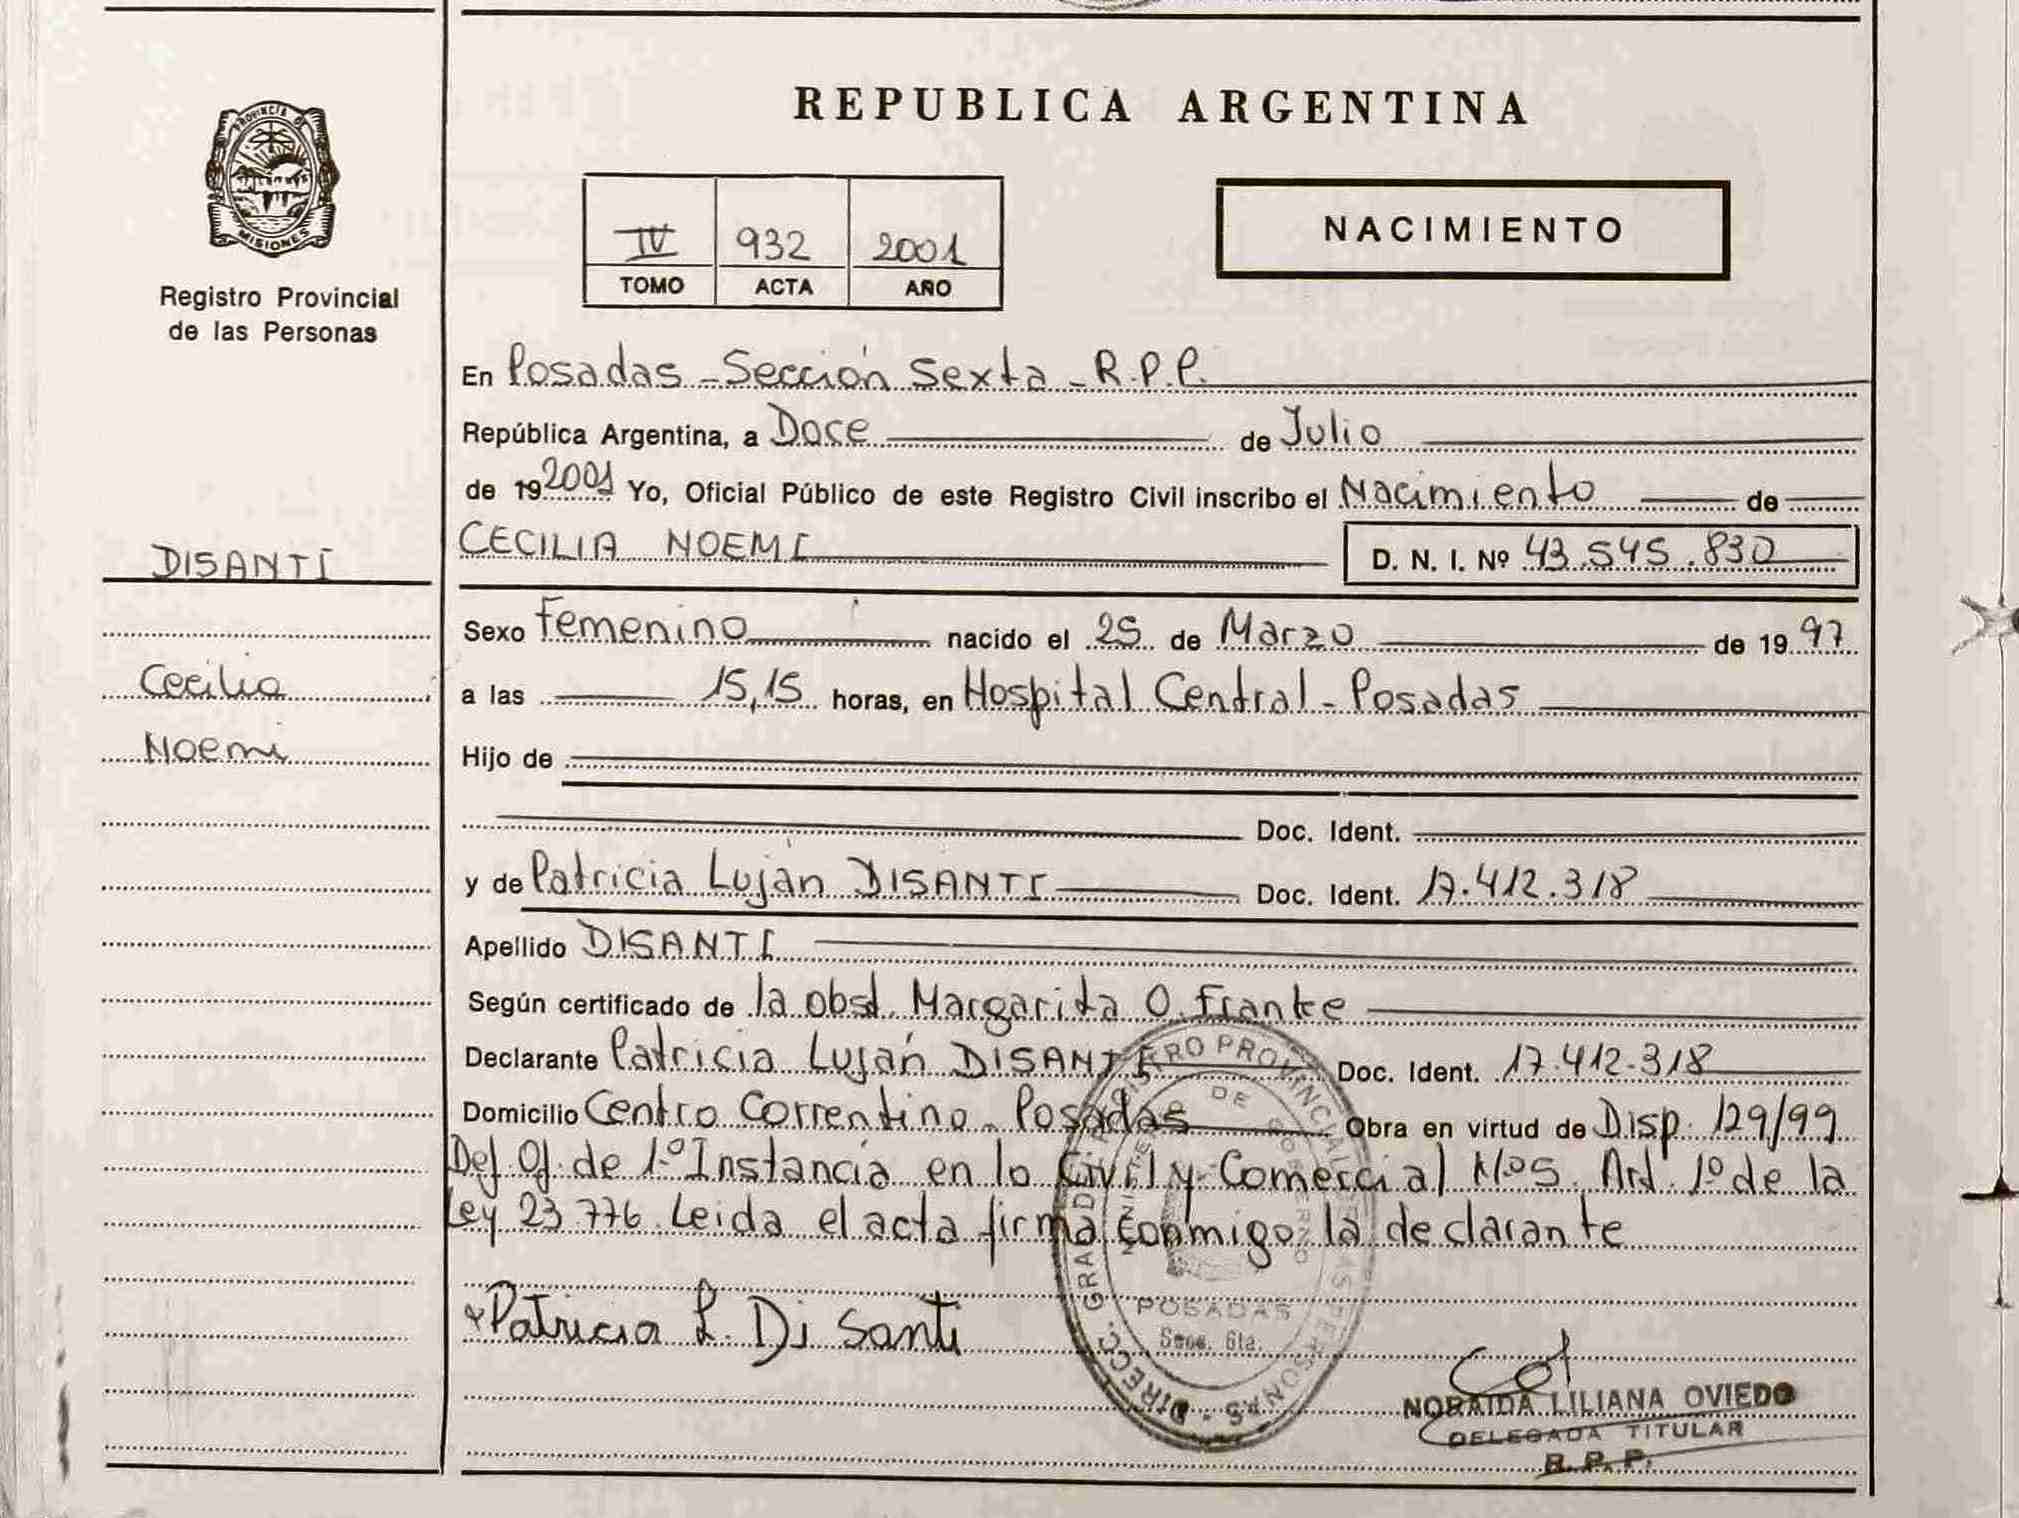 PROVINCIA DE
MISIONES
Registro Provincial
de las Personas
DISANTI
Cecilia
Noemi
REPUBLICA ARGENTINA
IV 932 2001
TOMO ACTA AÑO
NACIMIENTO
En Posadas - Sección Sexta - R.P.P.
República Argentina, a Doce de Julio
de 19 2001 Yo, Oficial Público de este Registro Civil inscribo el Nacimiento de
CECILIA NOEMI D. N. I. Nº 43.545.830
Sexo Femenino nacido el 25 de Marzo de 19 97
a las 15,15 horas, en Hospital Central - Posadas
Hijo de
Doc. Ident.
y de Patricia Luján DISANTI Doc. Ident. 17.412.318
Apellido DISANTI
Según certificado de la obst. Margarita O. Franke
Declarante Patricia Luján DISANTI Doc. Ident. 17.412.318
Domicilio Centro Correntino - Posadas Obra en virtud de Disp. 129/99
Def. Of. de 1º Instancia en lo Civil y Comercial Nº 5. Art. 1º de la
Ley 23.776. Leida el acta firma conmigo la declarante
Patricia L. Di Santi
POSADAS
Secc. 6ta.
NORAIDA LILIANA OVIEDO
DELEGADA TITULAR
R. P. P.